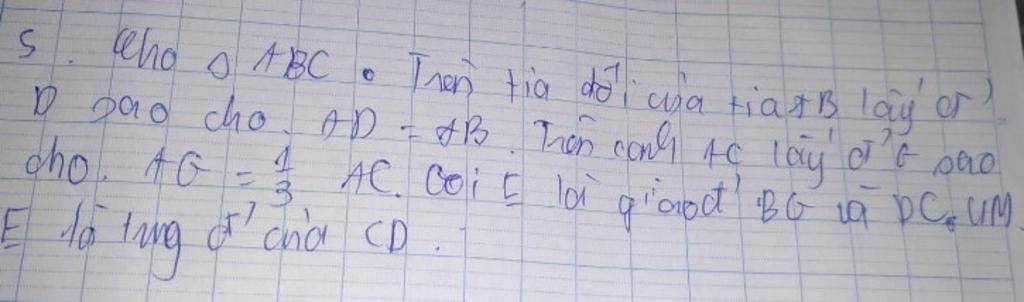 5. Cho △ ABC. Trên tia đối của tia AB lấy đ'
D sao cho. AD = AB. Trên cạnh AC lấy đ' G sao
cho. AG = 1/3 AC. Gọi E là giaođ' BG và DC. CM
E là trung đ' của CD.